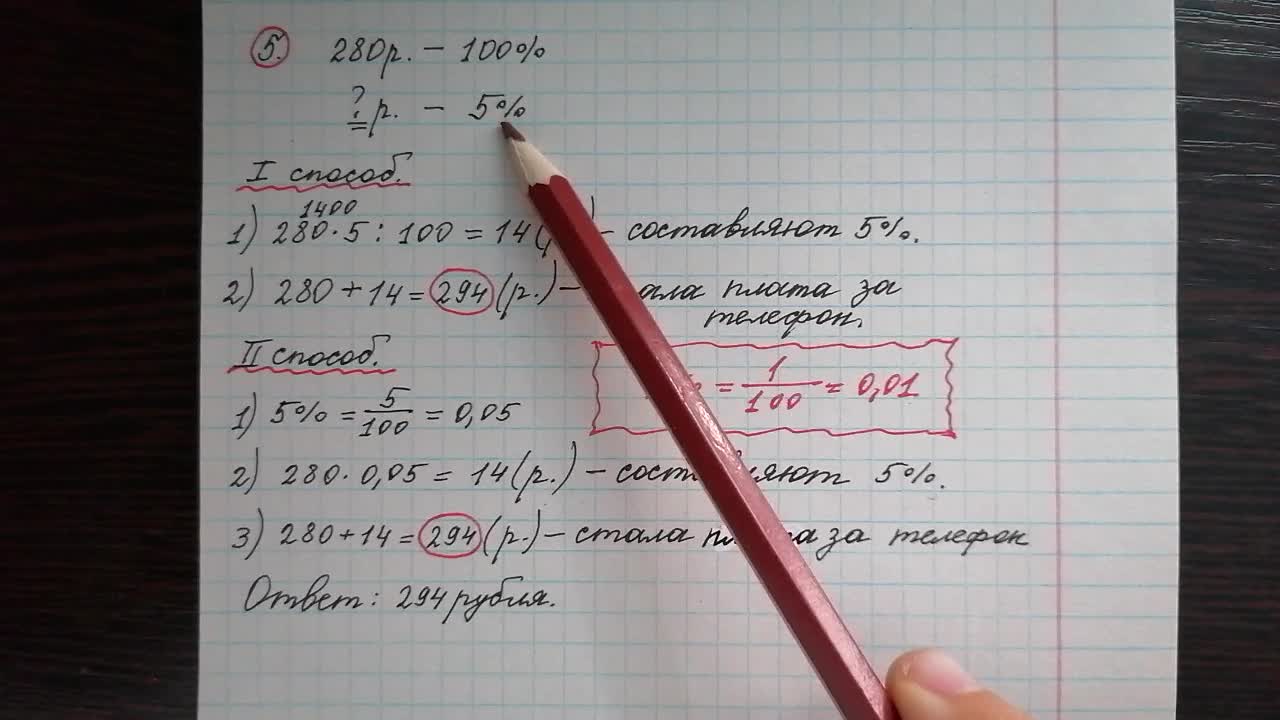 5. 280р. – 100%
? р. – 5%
I способ.
1400
1) 280·5 : 100 = 14( – составляют 5%.
2) 280 + 14 = 294 (р.) – плата за
телефон.
= 1/100 = 0,01
II способ.
1) 5% = 5/100 = 0,05
2) 280·0,05 = 14 (р.) – составляют 5%.
3) 280+14 = 294 (р.) – стала плата за телефон
Ответ: 294 рубля.